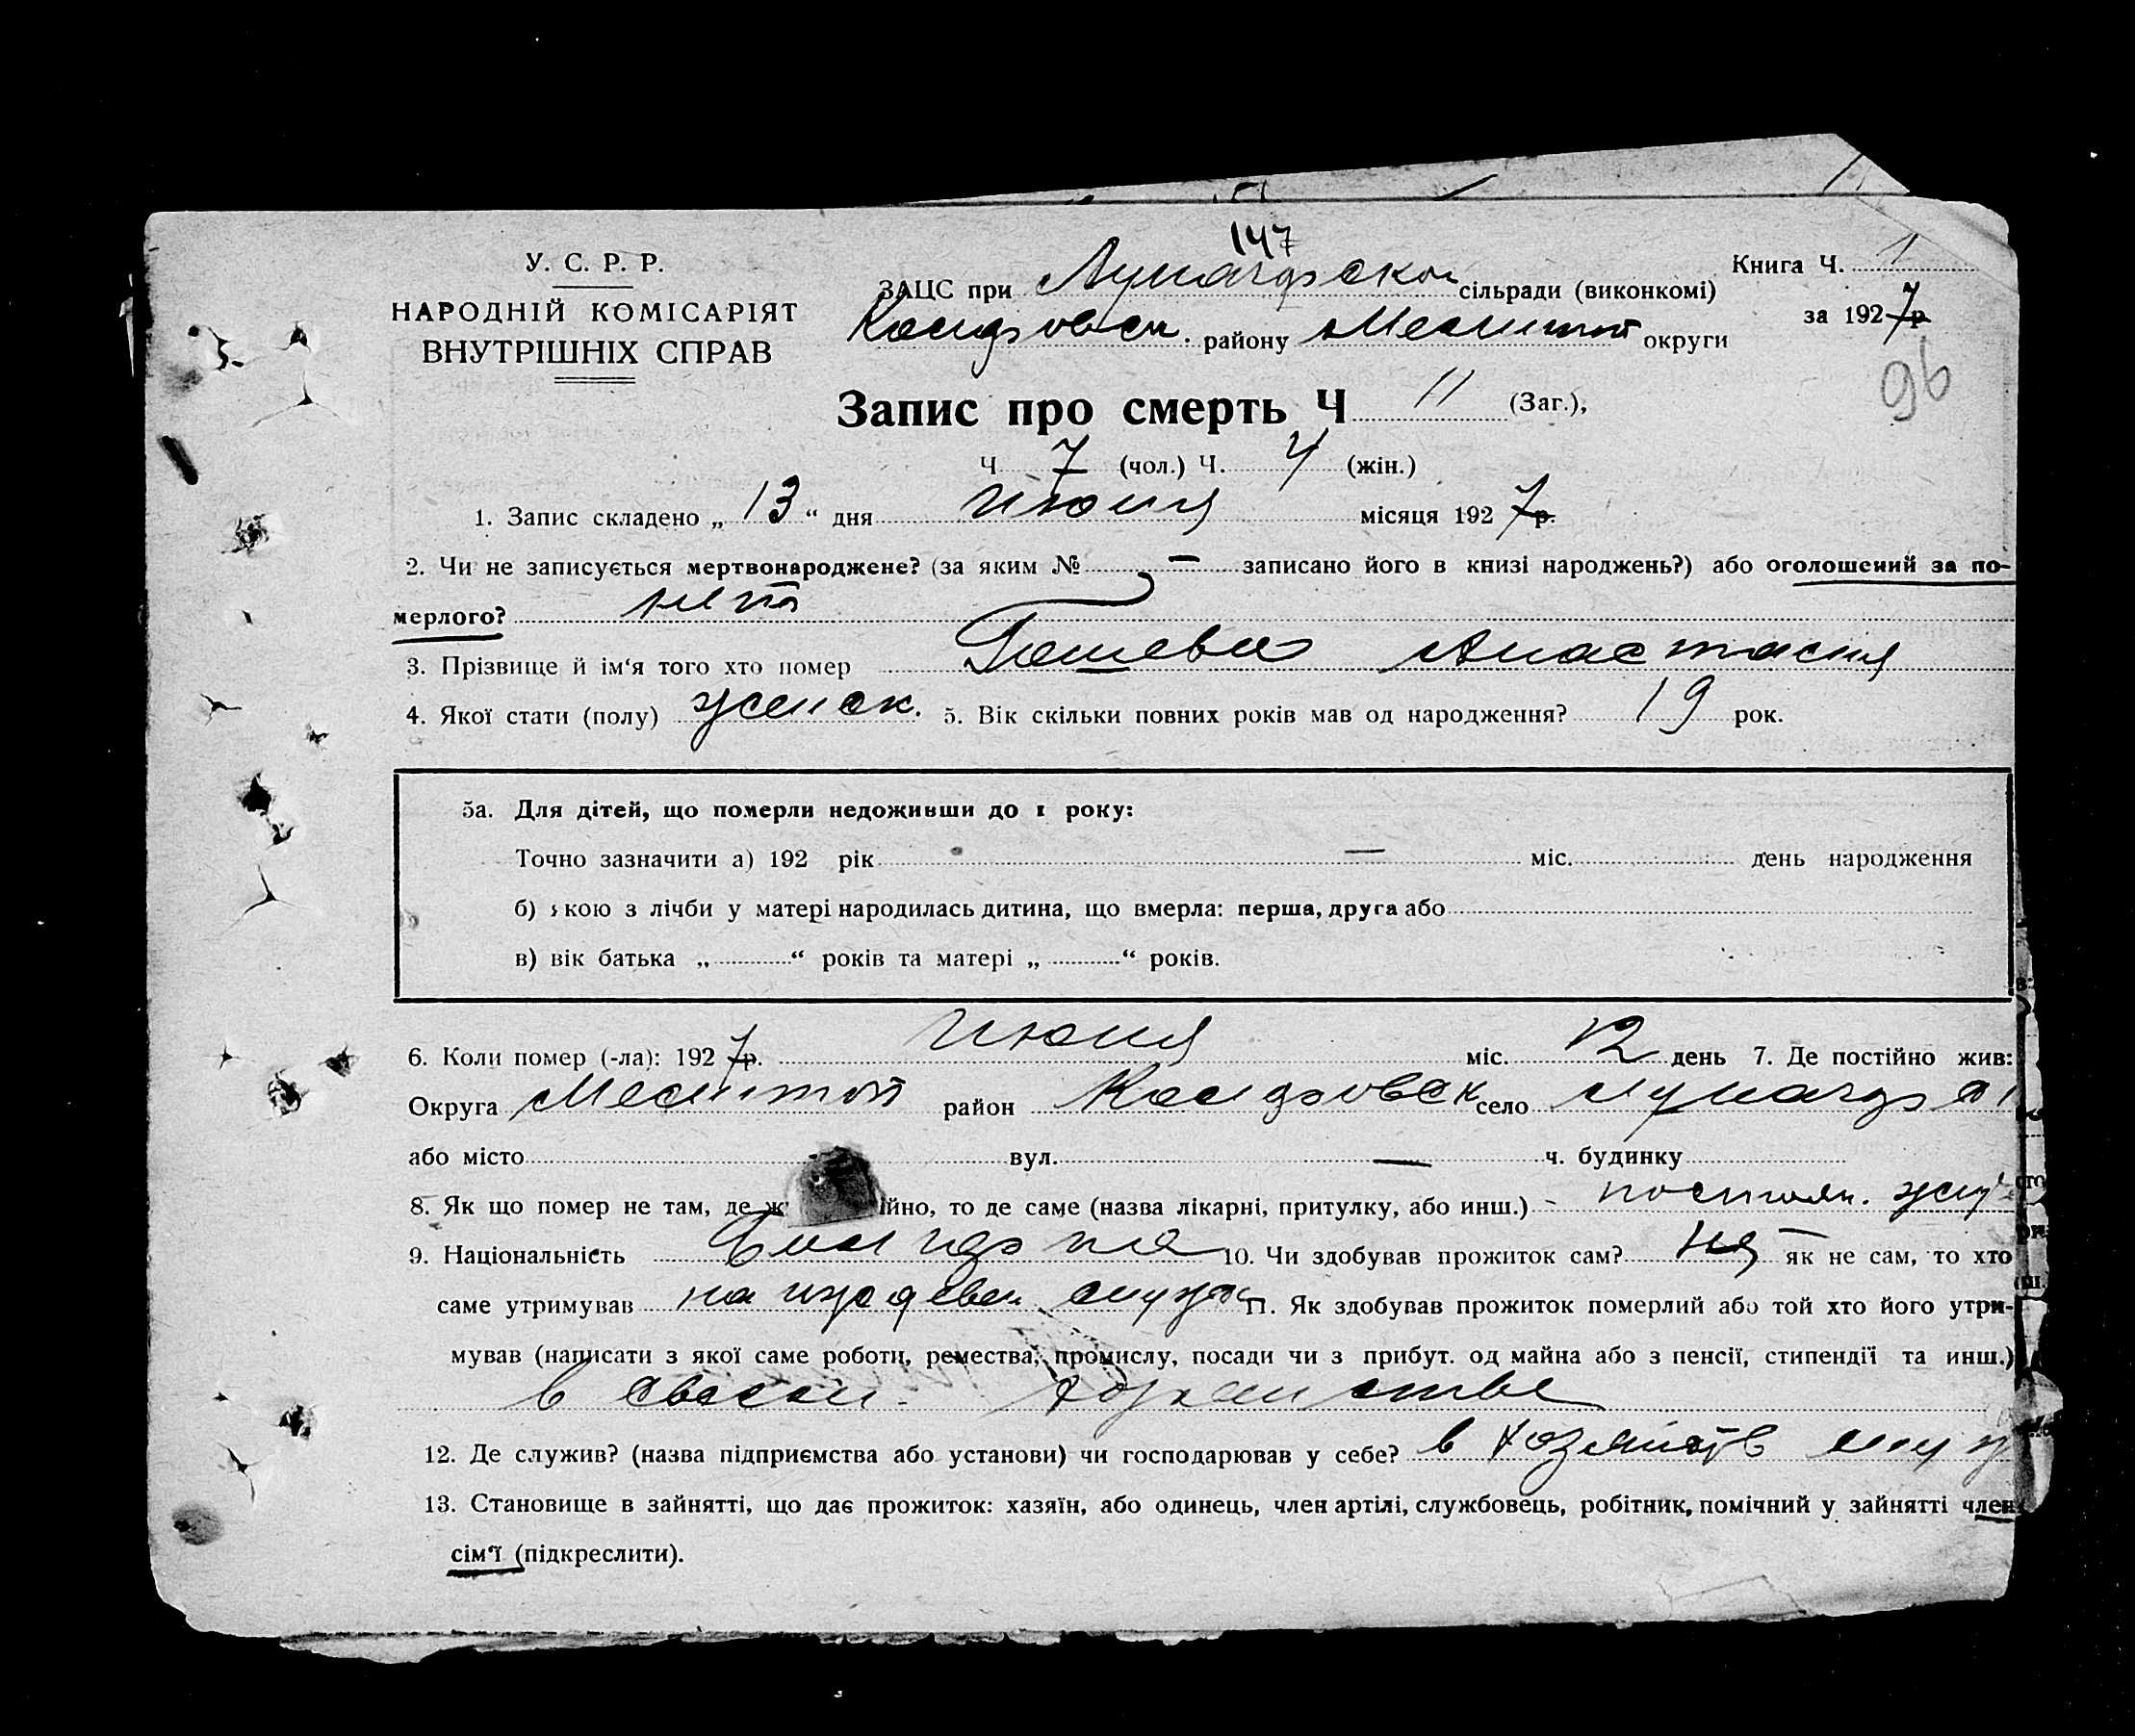 147
У. С. Р. Р.
НАРОДНІЙ КОМІСАРІЯТ
ВНУТРІШНІХ СПРАВ
ЗАЦС при сільради (виконкомі)
району округи
Книга Ч. 1
за 1927 р
96
Запис про смерть Ч 11 (Заг.),
Ч 7 (чол.) Ч. 4 (жін.)
1. Запис складено „ 13 “ дня июня місяця 1927 р.
2. Чи не записується мертвонароджене? (за яким № — записано його в книзі народжень?) або оголошений за по-
мерлого? нет
3. Прізвище й ім‘я того хто помер Анастасия
4. Якої стати (полу) женск. 5. Вік скільки повних років мав од народження? 19 рок.
5а. Для дітей, що померли недоживши до 1 року:
Точно зазначити а) 192 рік — міс. день народження
б) якою з лічби у матері народилась дитина, що вмерла: перша, друга або
в) вік батька „ “ років та матері „ “ років.
6. Коли помер (-ла): 1927 р. июня міс. 12 день 7. Де постійно жив:
Округа район село
або місто вул. — ч. будинку
8. Як що помер не там, де ж йно, то де саме (назва лікарні, притулку, або инш.) -
9. Національність 10. Чи здобував прожиток сам? як не сам, то хто
саме утримував на иждевен. 11. Як здобував прожиток померлий або той хто його утри-
мував (написати з якої саме роботи, ремества, промислу, посади чи з прибут. од майна або з пенсії, стипендії та инш.)
в
12. Де служив? (назва підприємства або установи) чи господарював у себе? в
13. Становище в зайнятті, що дає прожиток: хазяїн, або одинець, член артілі, службовець, робітник, помічний у зайнятті член
сім‘ї (підкреслити).